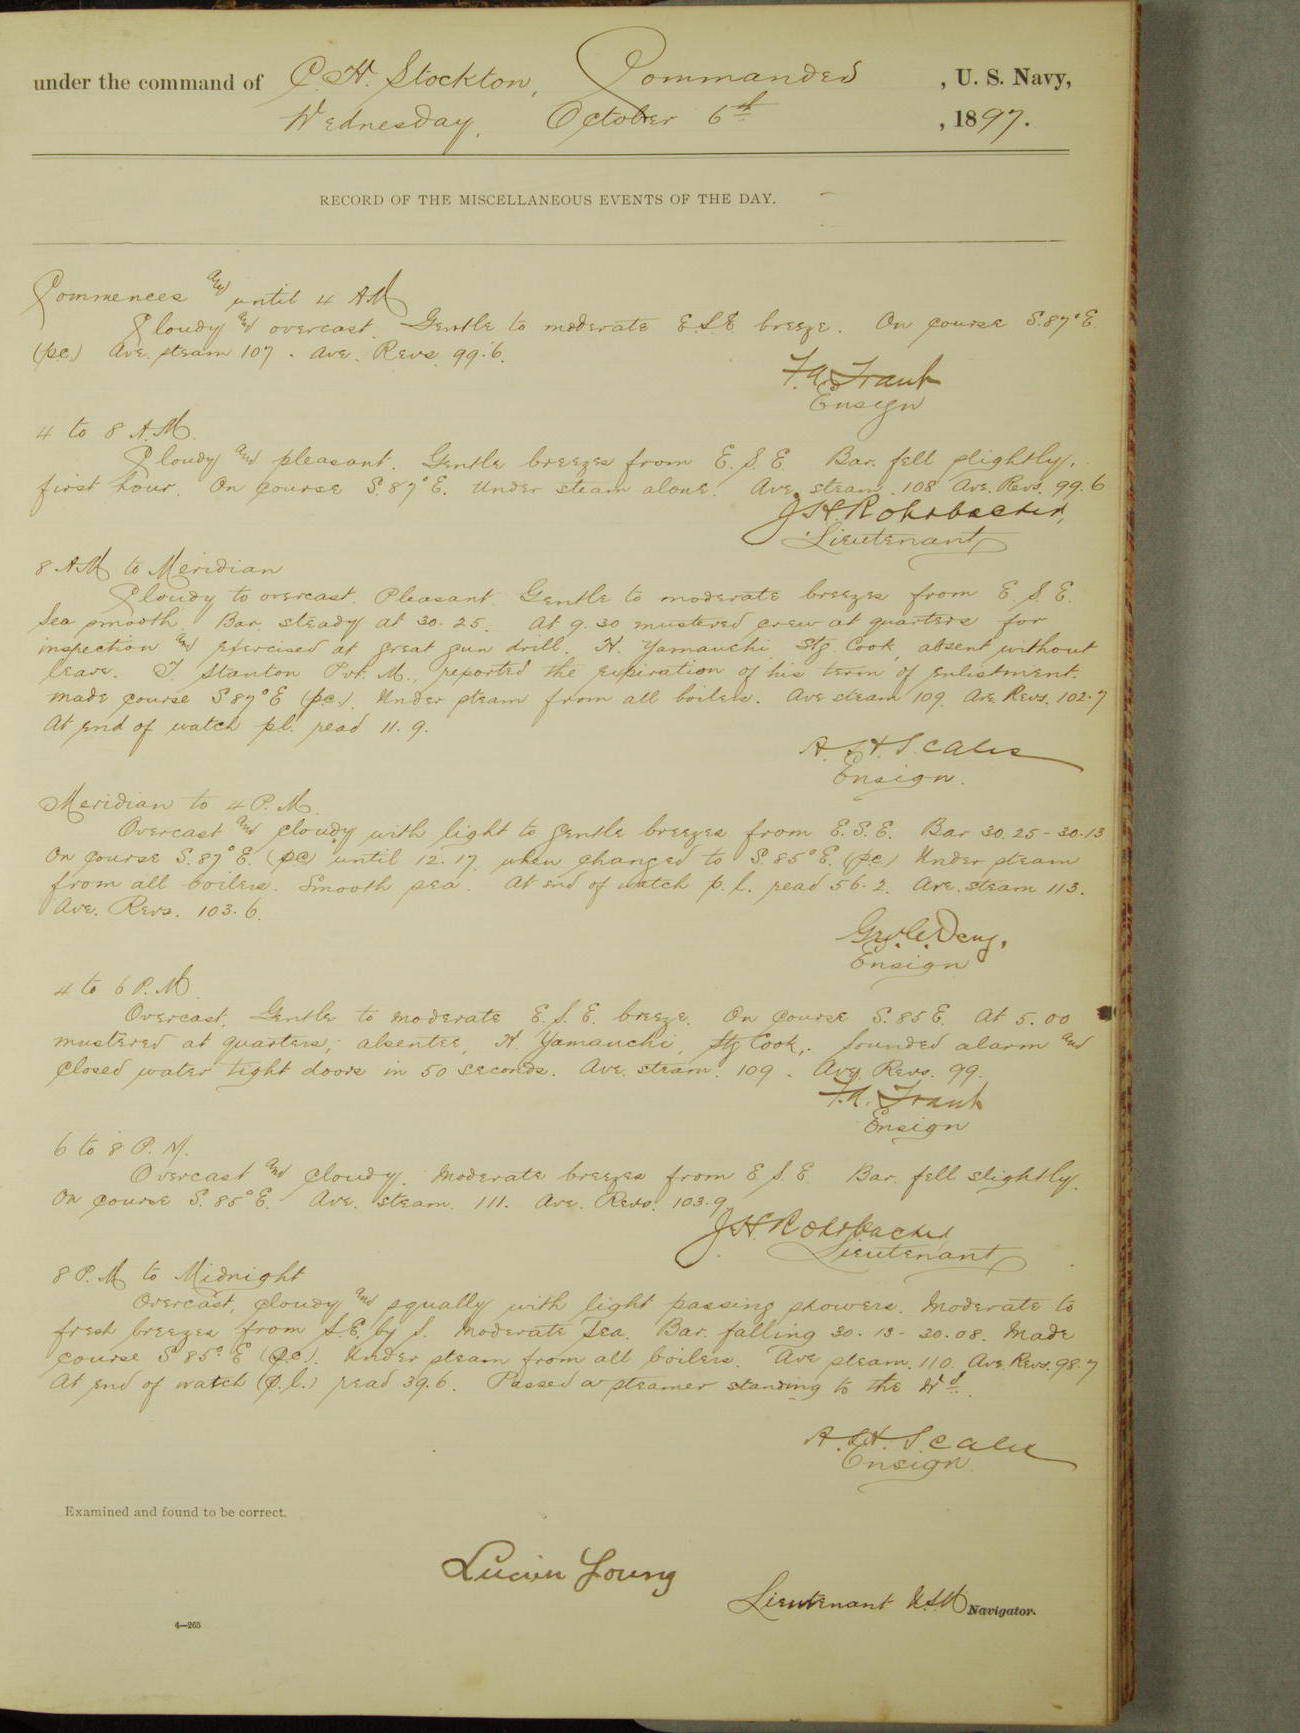 under the command of C. H. Stockton, Commander, U. S. Navy,
Wednesday, October 6th, 1897.
RECORD OF THE MISCELLANEOUS EVENTS OF THE DAY.
Commences and until 4 AM
Cloudy and overcast. Gentle to moderate E.S.E breeze. On course S.87°E.
(pc) Ave. steam 107. Ave. Revs. 99.6.
F. A. Traut
Ensign
4 to 8 A.M.
Cloudy and pleasant. Gentle breezes from E. S. E. Bar. fell slightly,
first hour. On course S.87°E. Under steam alone. Ave. steam. 108 Ave. Revs. 99.6
J H Rohrbacher,
Lieutenant
8 AM to Meridian
Cloudy to overcast. Pleasant. Gentle to moderate breezes from E. S. E.
Sea smooth. Bar. steady at 30.25. At 9.30 mustered crew at quarters for
inspection and exercised at great gun drill. H. Yamauchi, Stg. Cook, absent without
leave. T. Stanton Pvt. M., reported the expiration of his term of enlistment.
Made course S 87°E (pc). Under steam from all boilers. Ave steam 109. Ave. Revs. 102.7
At end of watch p.l. read 11.9.
A. H. Scales
Ensign.
Meridian to 4 P. M.
Overcast and cloudy with light to gentle breezes from E.S.E. Bar 30.25-30.13
On course S.87°E. (pc) until 12.17 when changed to S.85°E. (pc) Under steam
from all boilers. Smooth sea. At end of watch p.l. read 56.2. Ave. steam 113.
Ave. Revs. 103.6.
Geo. C. Day,
Ensign
4 to 6 P.M.
Overcast. Gentle to moderate E. S. E. breeze. On course S.85 E. At 5.00
mustered at quarters; absentee, H Yamauchi, Stg Cook,. Sounded alarm and
closed water tight doors in 50 seconds. Ave. steam. 109. Avg. Revs. 99.
F. A. Traut
Ensign
6 to 8 P. M.
Overcast and cloudy. Moderate breezes from E S. E. Bar. fell slightly.
On course S. 85°E. Ave. steam. 111. Ave. Revs. 103.9
J H Rohrbacher
Lieutenant
8 P.M to Midnight
Overcast, cloudy and squally with light passing showers. Moderate to
fresh breezes from S.E. by S. Moderate Sea. Bar. falling 30.13-30.08. Made
course S 85° E (p.c.). Under steam from all boilers. Ave steam. 110. Ave. Revs. 98.7
At end of watch (p.l.) read 39.6. Passed a steamer standing to the Wd.
A. H. Scales
Ensign
Examined and found to be correct.
Lucien Young
Lieutenant U.S.N. Navigator.
4—265